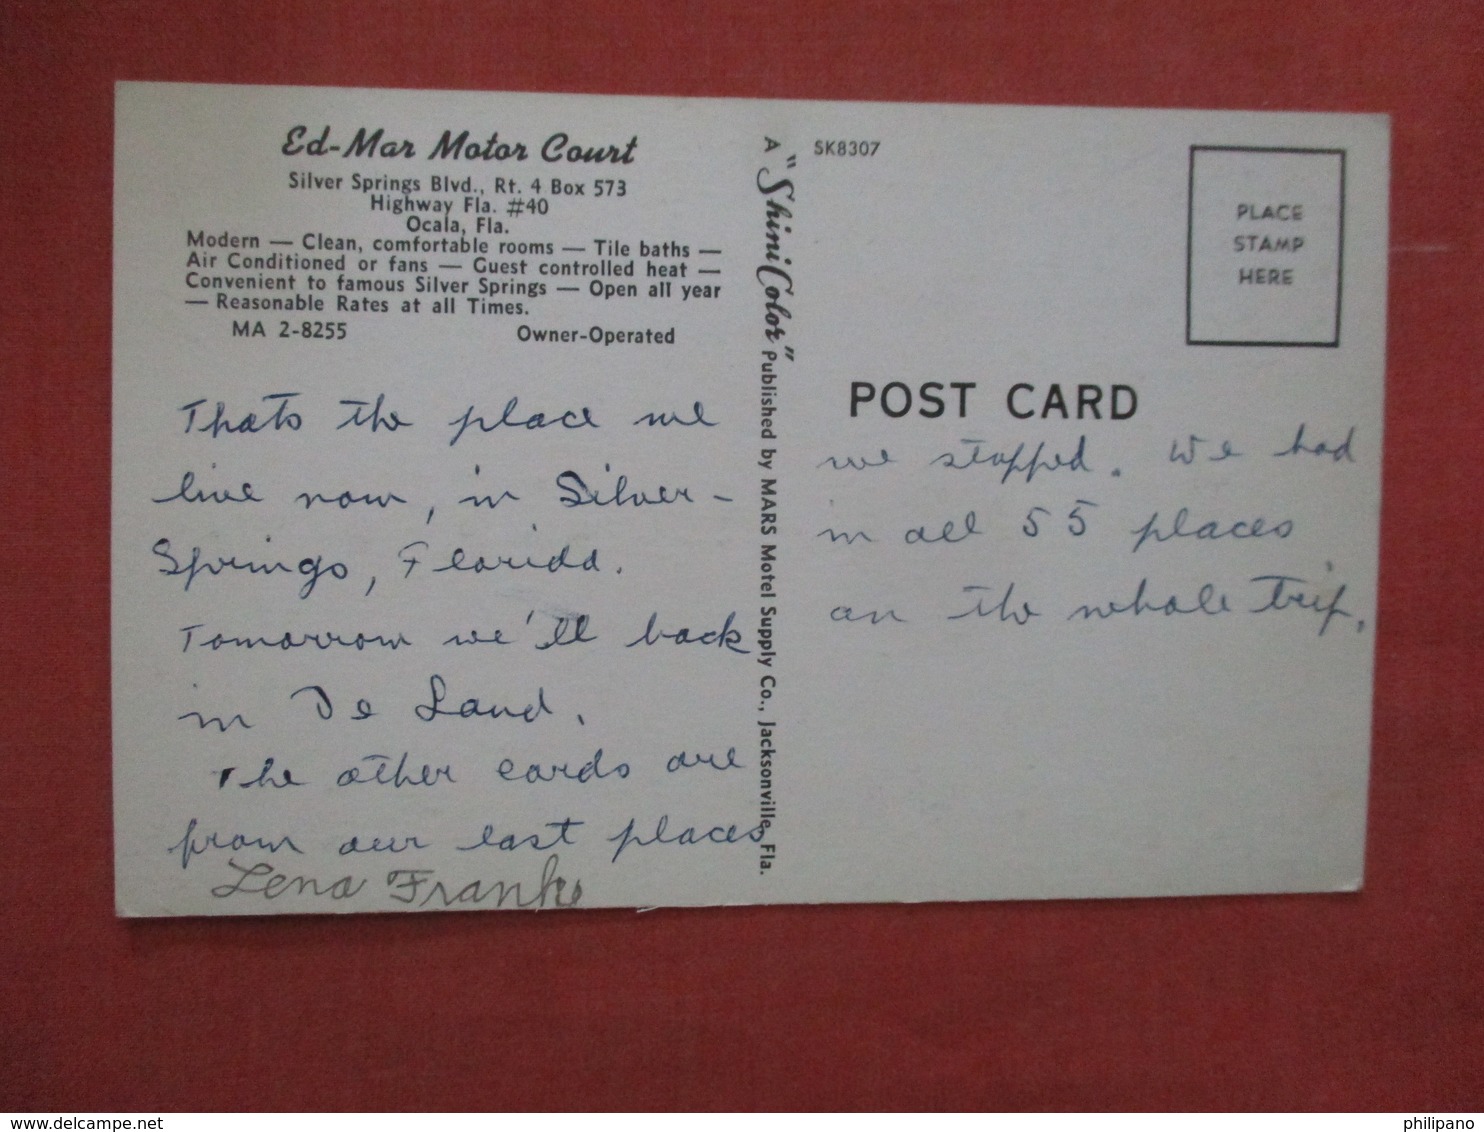 Ed-Mar Motor Court
Silver Springs Blvd., Rt. 4 Box 573
Highway Fla. #40
Ocala, Fla.
Modern — Clean, comfortable rooms — Tile baths —
Air Conditioned or fans — Guest controlled heat —
Convenient to famous Silver Springs — Open all year
— Reasonable Rates at all Times.
MA 2-8255 Owner-Operated
Thats the place we
live now, in Silver-
Springs, Florida.
Tomorrow we'll back
in De Land.
The other cards are
from our last places
Lena Franke
A "ShiniColor" Published by MARS Motel Supply Co., Jacksonville, Fla.
SK8307
PLACE
STAMP
HERE
POST CARD
we stopped. We had
in all 55 places
on the whole trip.
delcampe.net
philipano